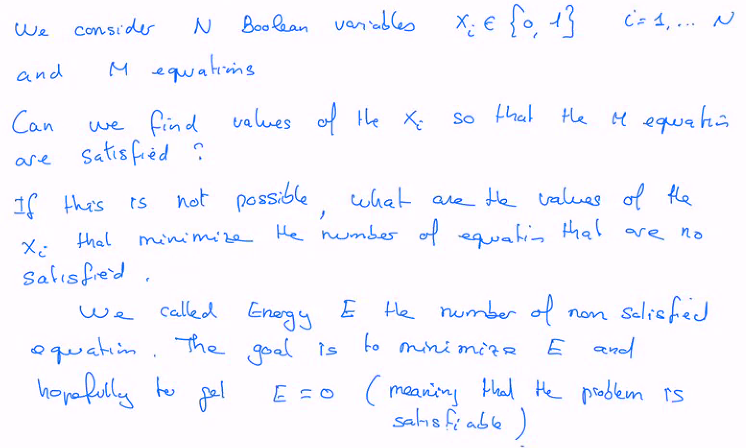 We consider N Boolean variables x_i ∈ {0, 1} i = 1, ... N
and M equations
Can we find values of the x_i so that the M equation
are satisfied ?
If this is not possible, what are the values of the
x_i that minimize the number of equation that are no
satisfied.
We called Energy E the number of non satisfied
equation. The goal is to minimize E and
hopefully to get E = 0 (meaning that the problem is
satisfiable)